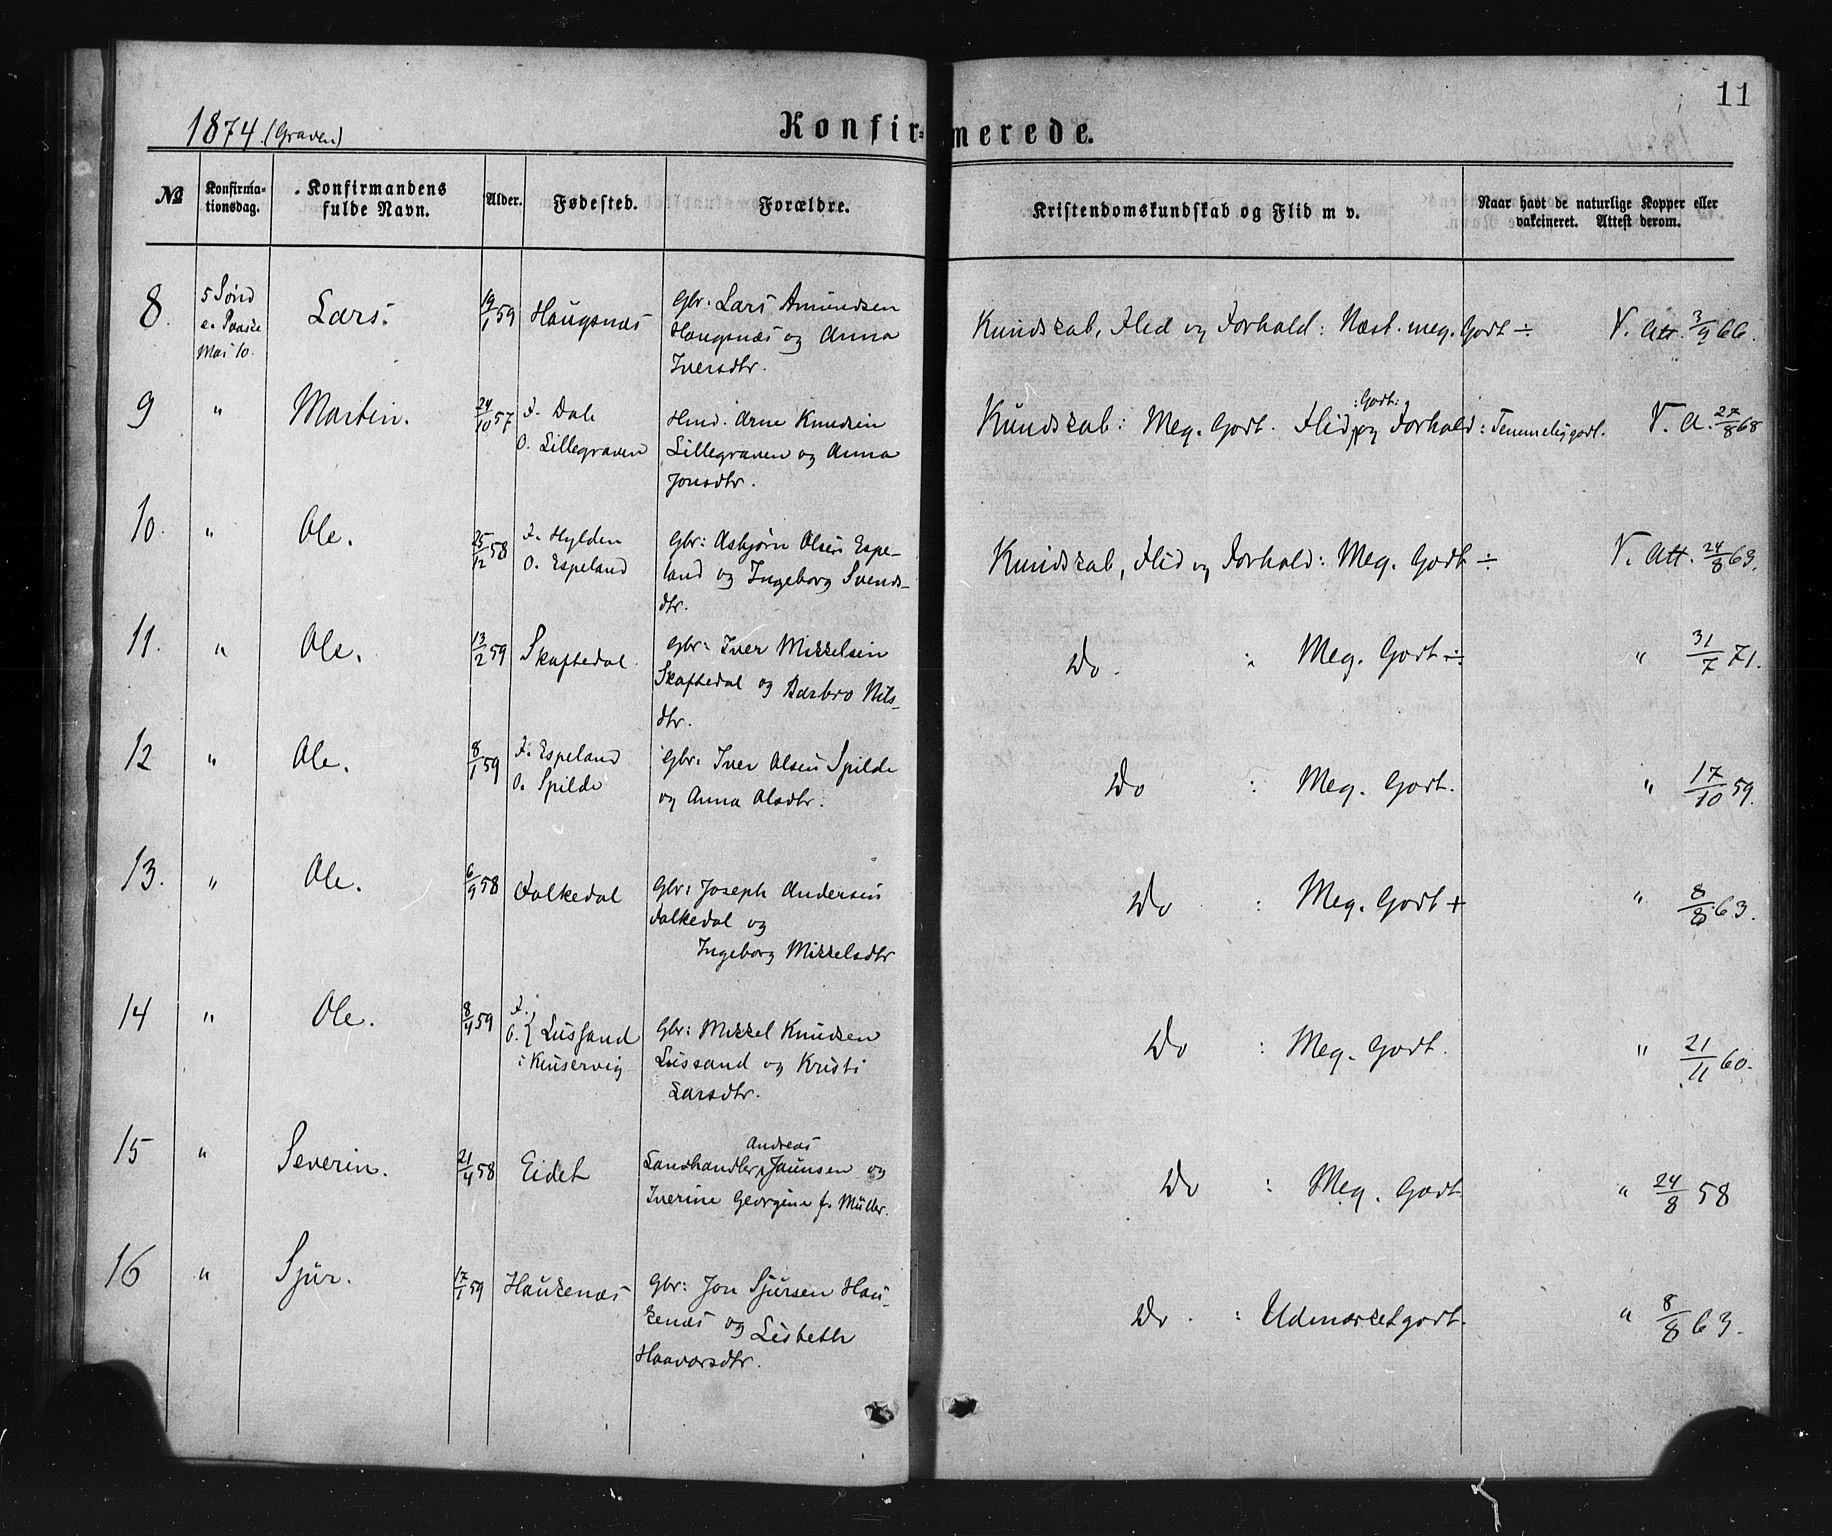 11
1874. (Graven)
Konfirmerede.
№
Konfirma-
tionsdag.
Konfirmandens
fulde Navn.
Alder.
Fødested.
Forældre.
Kristendomskundskab og Flid m v.
Naar havt de naturlige Kopper eller
vakcineret. Attest derom.
8.
5 Sønd
e. Paaske
Mai 10.
Lars.
19/1 59
Haugsnæs
Gbr: Lars Amundsen
Haugsnæs og Anna
Iversdtr.
Kundskab, Flid og Forhold: Næst. meg. Godt ÷
V. Att. 3/9 66.
9
"
Martin.
24/10 57
F. Dale
O. Lillegraven
Hmd. Arne Knudsen
Lillegraven og Anna
Jonsdtr.
Kundskab: Meg. Godt. Flid :Godt: og Forhold: Temmelig godt.
V. A. 27/8 68
10.
"
Ole.
25/12 58
F. Hylden
O. Espeland
Gbr: Asbjørn Olsen Espe-
land og Ingeborg Svends-
dtr.
Kundskab, Flid og Forhold: Meg. Godt ÷
V. Att. 24/8 63.
11.
"
Ole.
13/2 59
Skaftedal.
Gbr: Iver Mikkelsen
Skaftedal og Barbro Nils-
dtr.
Do. : Meg. Godt ÷
" 31/7 71.
12
"
Ole.
8/1 59
F. Espeland
O. Spilde
Gbr: Iver Olsen Spilde
og Anna Olsdtr.
Do : Meg. Godt.
" 17/10 59.
13.
"
Ole.
6/9 58
Falkedal
Gbr: Joseph Andersen
Falkedal og
Ingeborg Mikkelsdtr
Do : Meg. Godt +
" 8/8 63.
14
"
Ole.
8/4 59
F.
O. } Lussand
i Kinservig
Gbr: Mikkel Knudsen
Lussand og Kristi
Larsdtr.
Do : Meg. Godt.
" 21/11 60.
15
"
Severin.
21/4 58
Eidet
Landhandler Andreas Jaunsen og
Iverine Georgine f. Müller.
Do : Meg. Godt
" 24/8 58
16
"
Sjur.
17/1 59
Haukenæs
Gbr: Jon Sjursen Hau-
kenæs og Lisbeth
Haavarsdtr.
Do. : Udmærket godt.
" 8/8 63.